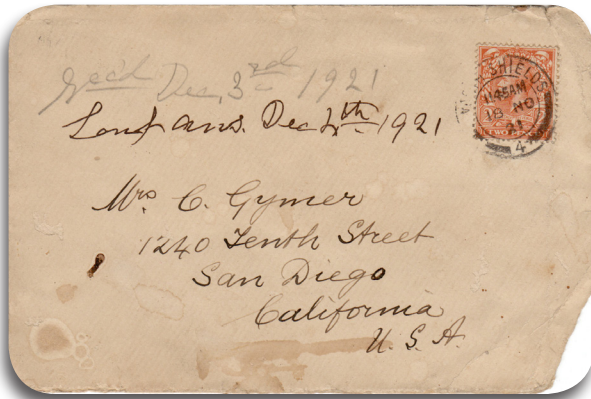 Rec'd Dec. 3rd 1921
Sent ans. Dec 4th 1921
SHIELDS
11.45AM
18 NO
21
4
TWO
Mrs C. Gymer
1240 Tenth Street
San Diego
California
U. S. A.